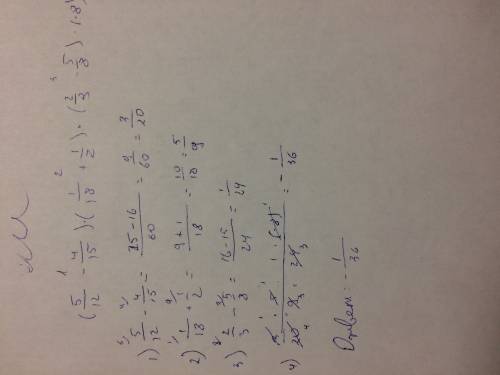 (5/12 - 4/15) · (1/18 + 1/2) · (2/3 - 5/8) · (-8)
1) 5/12 - 4/15 = 25-16/60 = 9/60 = 3/20
2) 1/18 + 1/2 = 9+1/18 = 10/18 = 5/9
3) 2/3 - 5/8 = 16-15/24 = 1/24
4) 3 · 5 · 1 · (-8)/20 · 9 · 24 = - 1/36
Ответ: - 1/36